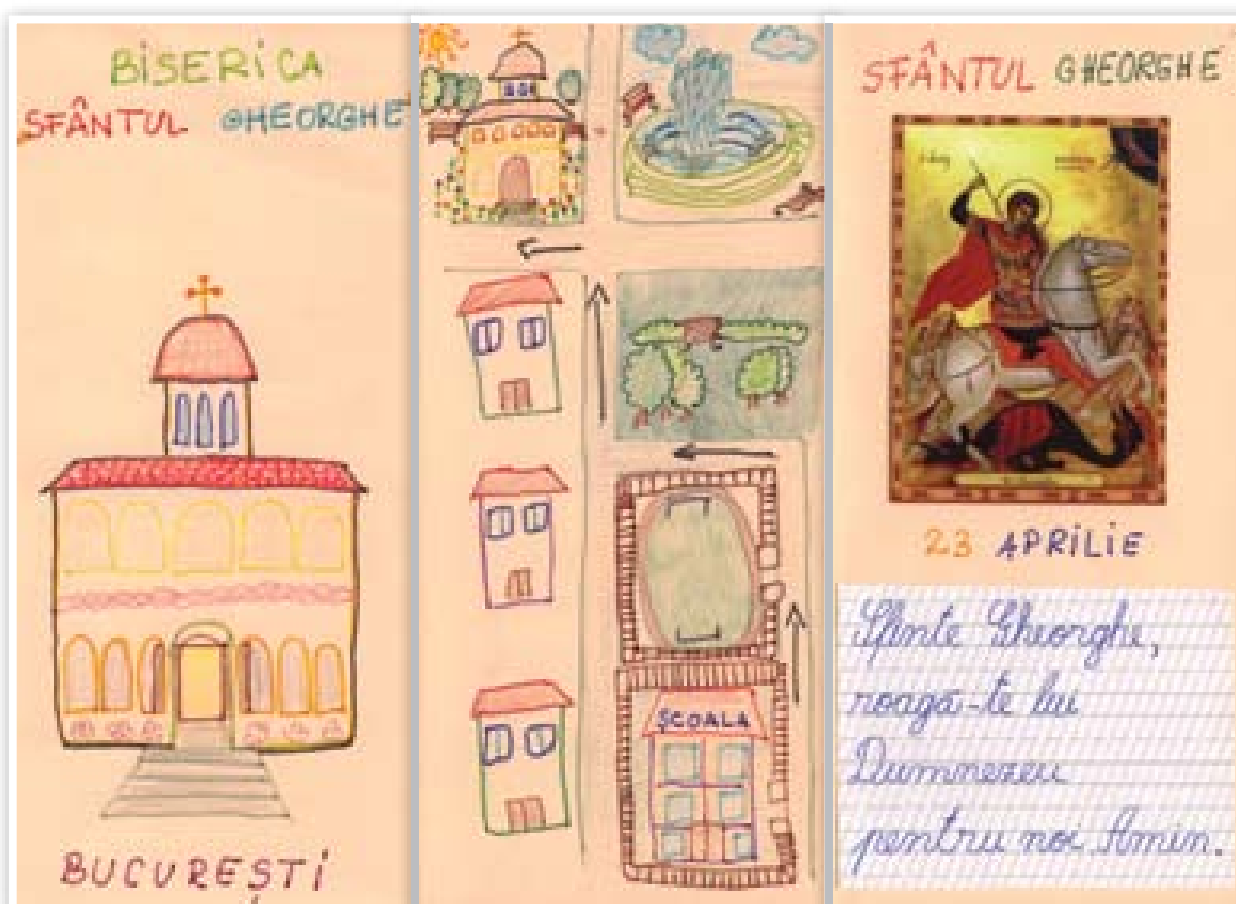 BISERICA
SFÂNTUL GHEORGHE
BUCUREȘTI
ȘCOALA
SFÂNTUL GHEORGHE
23 APRILIE
Sfinte Gheorghe,
roagă-te lui
Dumnezeu
pentru noi Amin.